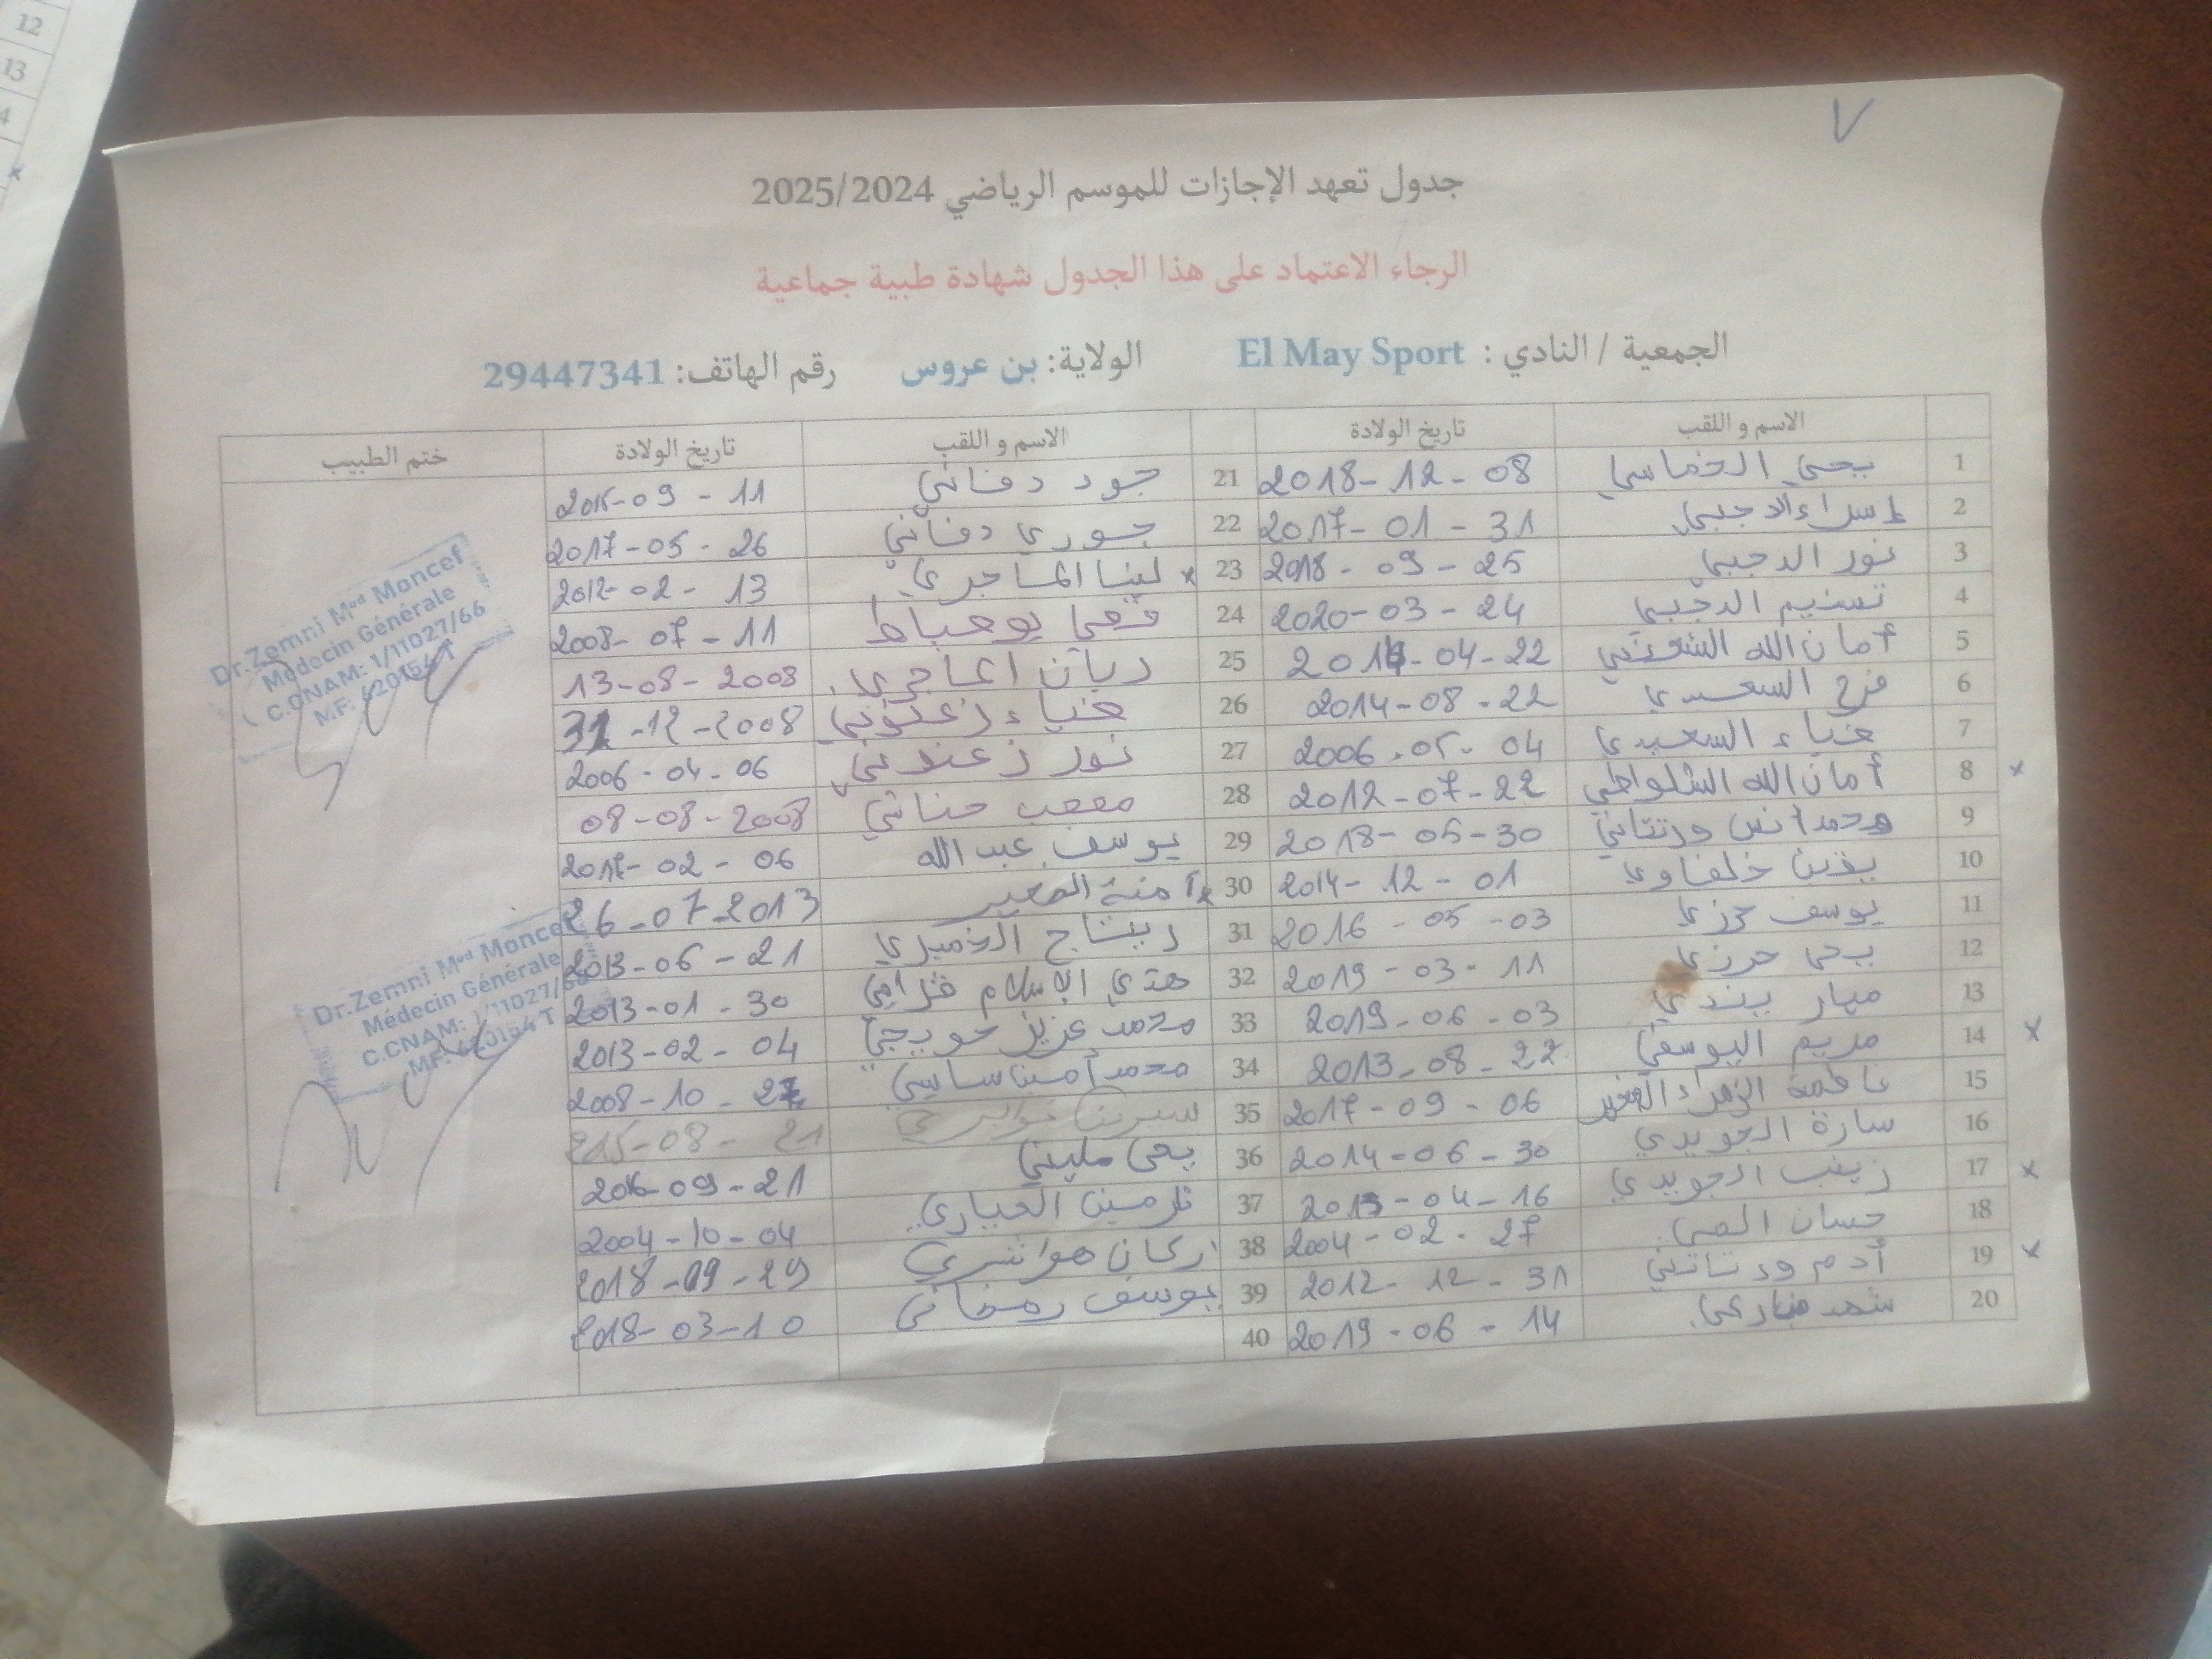 12
13
4
x
V
جدول تعهد الإجازات للموسم الرياضي 2025/2024
الرجاء الاعتماد على هذا الجدول شهادة طبية جماعية
الجمعية / النادي : El May Sport الولاية: بن عروس رقم الهاتف: 29447341
الاسم و اللقب تاريخ الولادة الاسم و اللقب تاريخ الولادة ختم الطبيب
1 يحي الخماسي 2018-12-08 21 جود دفاني 2015-09-11
2 إسراء الدجبي 2017-01-31 22 جوري دفاني 2017-05-26
3 نور الدجبي 2018-09-25 23 x لينا الماجري 2012-02-13
4 تسنيم الدجبي 2020-03-24 24 2008-07-11
5 أمان الله 2014-04-22 25 ريان الماجري 13-08-2008
6 فرح السعيدي 2014-08-22 26 ضياء زعنوني 31-12-2008
7 ضياء السعيدي 2006-05-04 27 نور زعنوني 2006-04-06
8 x أمان الله الشلواطي 2012-07-22 28 مصعب حناشي 08-08-2008
9 محمد أنس ورتتاني 2018-05-30 29 يوسف عبد الله 2017-02-06
10 يقين خلفاوي 2014-12-01 30 x آمنة الصغير 26-07-2013
11 يوسف حرزي 2016-05-03 31 ريتاج الخميري 2013-06-21
12 يحي حرزي 2019-03-11 32 هدى الإسلام 2013-01-30
13 مهار 2019-06-03 33 محمد عزيز خويجي 2013-02-04
14 x مريم اليوسفي 2013-08-22 34 محمد أمين ساسي 2008-10-27
15 فاطمة الزهراء الصغير 2017-09-06 35 سيرين 215-08-21
16 سارة الجويدي 2014-06-30 36 يحي مليتي 2016-09-21
17 x زينب الجويدي 2013-04-16 37 نرمين العياري 2004-10-04
18 حسان 2004-02-27 38 اركان هواشري 2018-09-29
19 x أدم ورتاتني 2012-12-31 39 يوسف رمضاني 2018-03-10
20 شهد 2019-06-14 40
Dr.Zemni Med Moncef
Médecin Générale
C.CNAM: 1/11027/66
M.F: 620154 T
Dr.Zemni Med Moncef
Médecin Générale
C.CNAM: 1/11027/66
MF: 620154 T